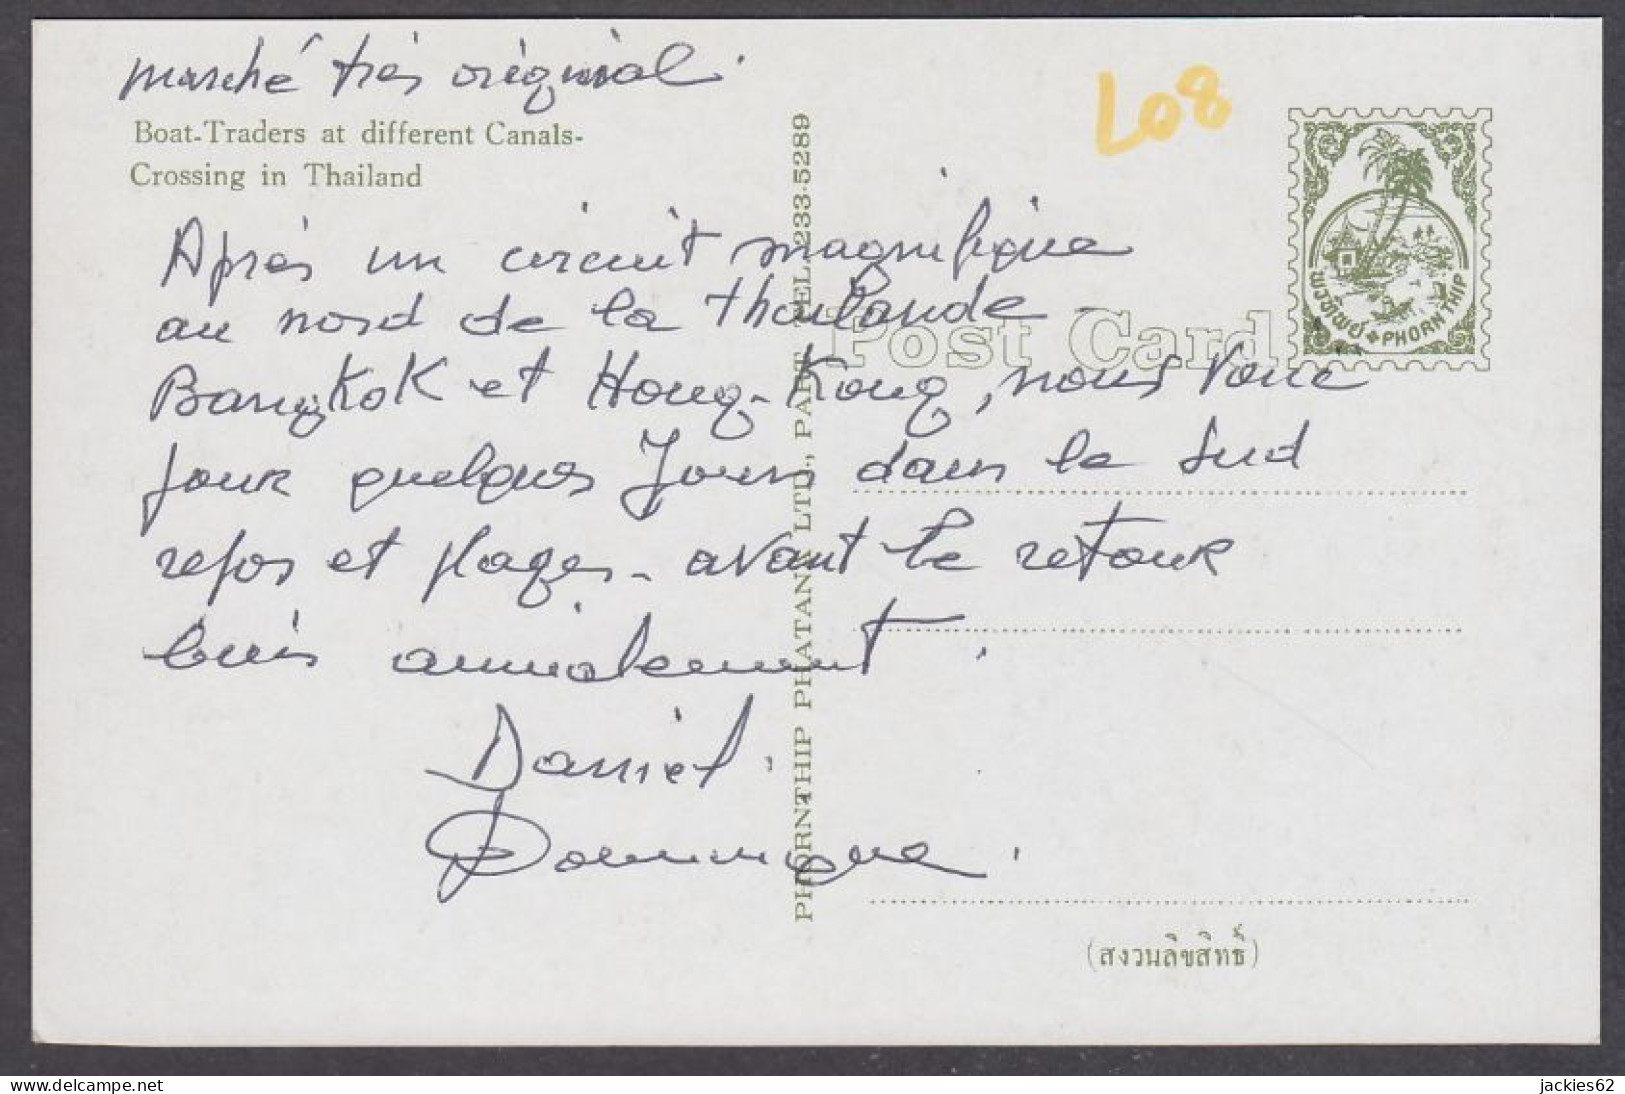 marché très original.
Boat-Traders at different Canals-
Crossing in Thailand
L08
พรทิพย์ PHORN THIP
Post Card
Après un circuit magnifique
au nord de la Thailande -
BangKoK et Hong-Kong, nous
pour quelques jours dans le Sud
repos et plages - avant le retour
amicalement.
Daniel.
Dominique.
PHORNTHIP PHATANA LTD., PART. TEL. 233-5289
(สงวนลิขสิทธิ์)
delcampe.net
jackies62